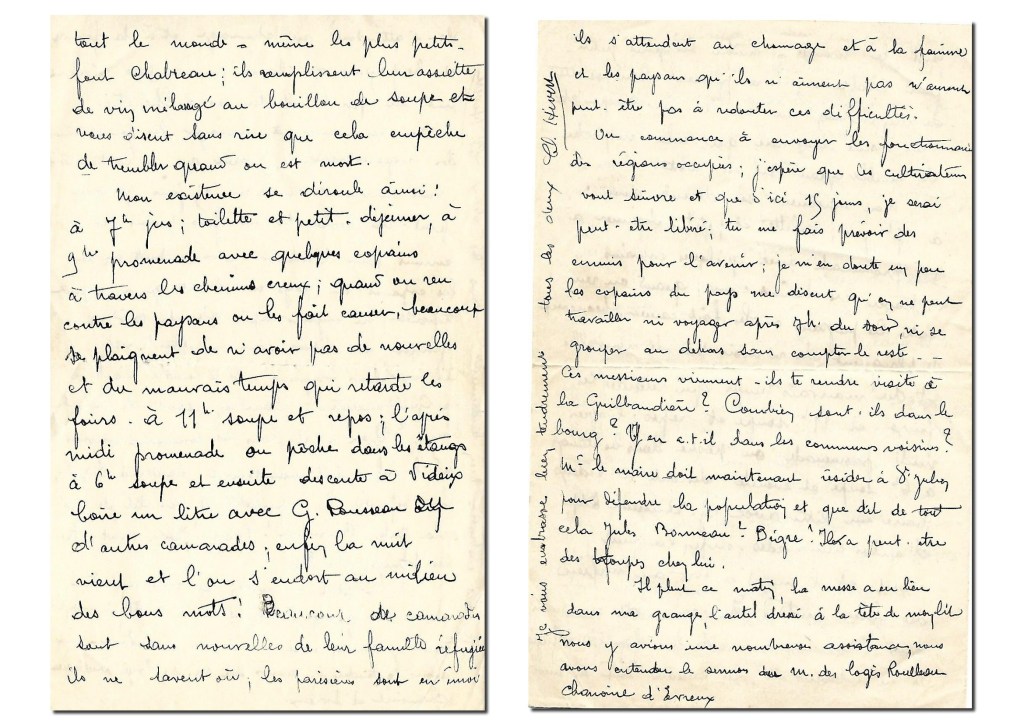 tout le monde - même les plus petits -
font Chabreau; ils remplissent leur assiette
de vin mélangé au bouillon de soupe et
vous disent sans rire que cela empêche
de trembler quand on est mort.
Mon existence se déroule ainsi:
à 7h jus; toilette et petit-déjeuner, à
9h promenade avec quelques copains
à travers les chemins creux; quand on ren
contre les paysans on les fait causer, beaucoup
se plaignent de n'avoir pas de nouvelles
et du mauvais temps qui retarde les
foins. à 11h soupe et repos; l'après
midi promenade ou pêche dans les étangs
à 6h soupe et ensuite descente à Videix
boire un litre avec G. Rousseau
d'autres camarades; enfin la nuit
vient et l'on s'endort au milieu
des bons mots! Beaucoup de camarades
sont sans nouvelles de leur famille réfugiée
ils ne savent où; les parisiens sont en émoi
ils s'attendent au chomage et à la famine
et les paysans qu'ils n'aiment pas n'auront
peut-être pas à redouter ces difficultés.
On commence à envoyer les fonctionnaires
des régions occupées; j'espère que les cultivateurs
vont suivre et que d'ici 15 jours, je serai
peut-être libéré; tu me fais prévoir des
ennuis pour l'avenir; je m'en doute un peu
les copains du pays me disent qu'on ne peut
travailler ni voyager après 7h. du soir, ni se
grouper au dehors sans compter le reste - -
Ces messieurs viennent-ils te rendre visite à
la Guilbaudière? Combien sont-ils dans le
bourg? Y en a.t.il dans les communes voisines?
Mr le maire doit maintenant résider à St Julien
pour défendre la population et que dit de tout
cela Jules Bonneau? Bigre! Il a peut-être
des troupes chez lui.
Il pleut ce matin, la messe a eu lieu
dans ma grange, l'autel dressé à la tête de mon lit
nous y avions une nombreuse assistance, nous
avons entendu le sermon de m. des logès Roulleau
chanoine d'Evreux
Je vous embrasse bien tendrement tous les deux Cl. Hivert